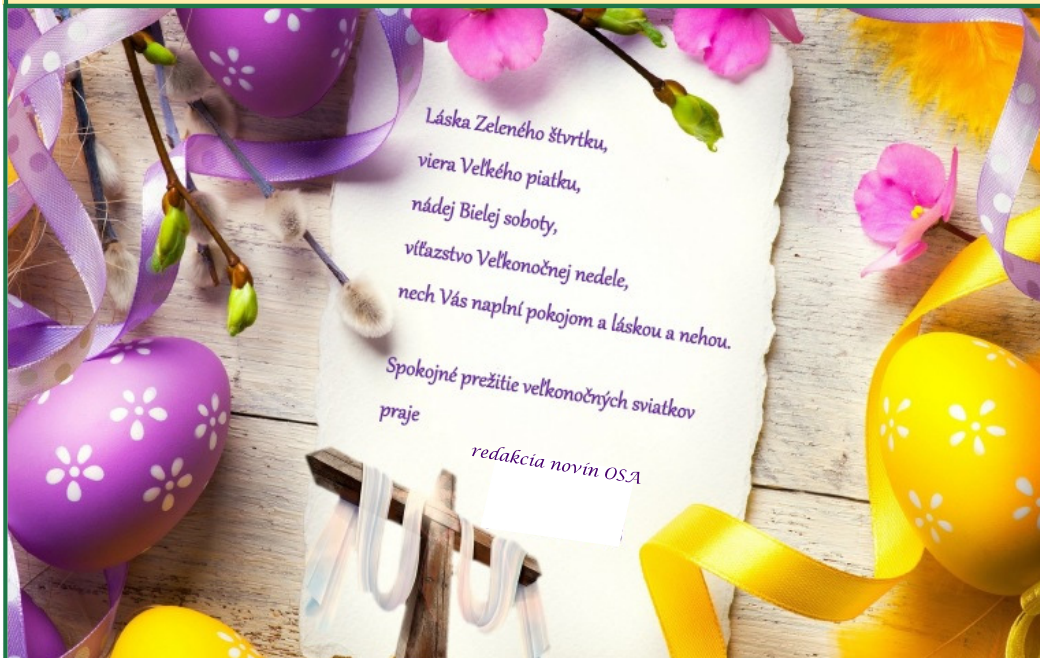 Láska Zeleného štvrtku,
viera Veľkého piatku,
nádej Bielej soboty,
víťazstvo Veľkonočnej nedele,
nech Vás naplní pokojom a láskou a nehou.
Spokojné prežitie veľkonočných sviatkov
praje
redakcia novín OSA